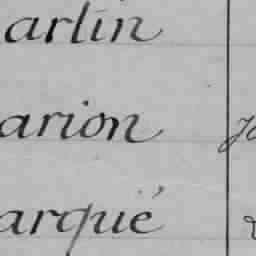 artin
arion
arqué